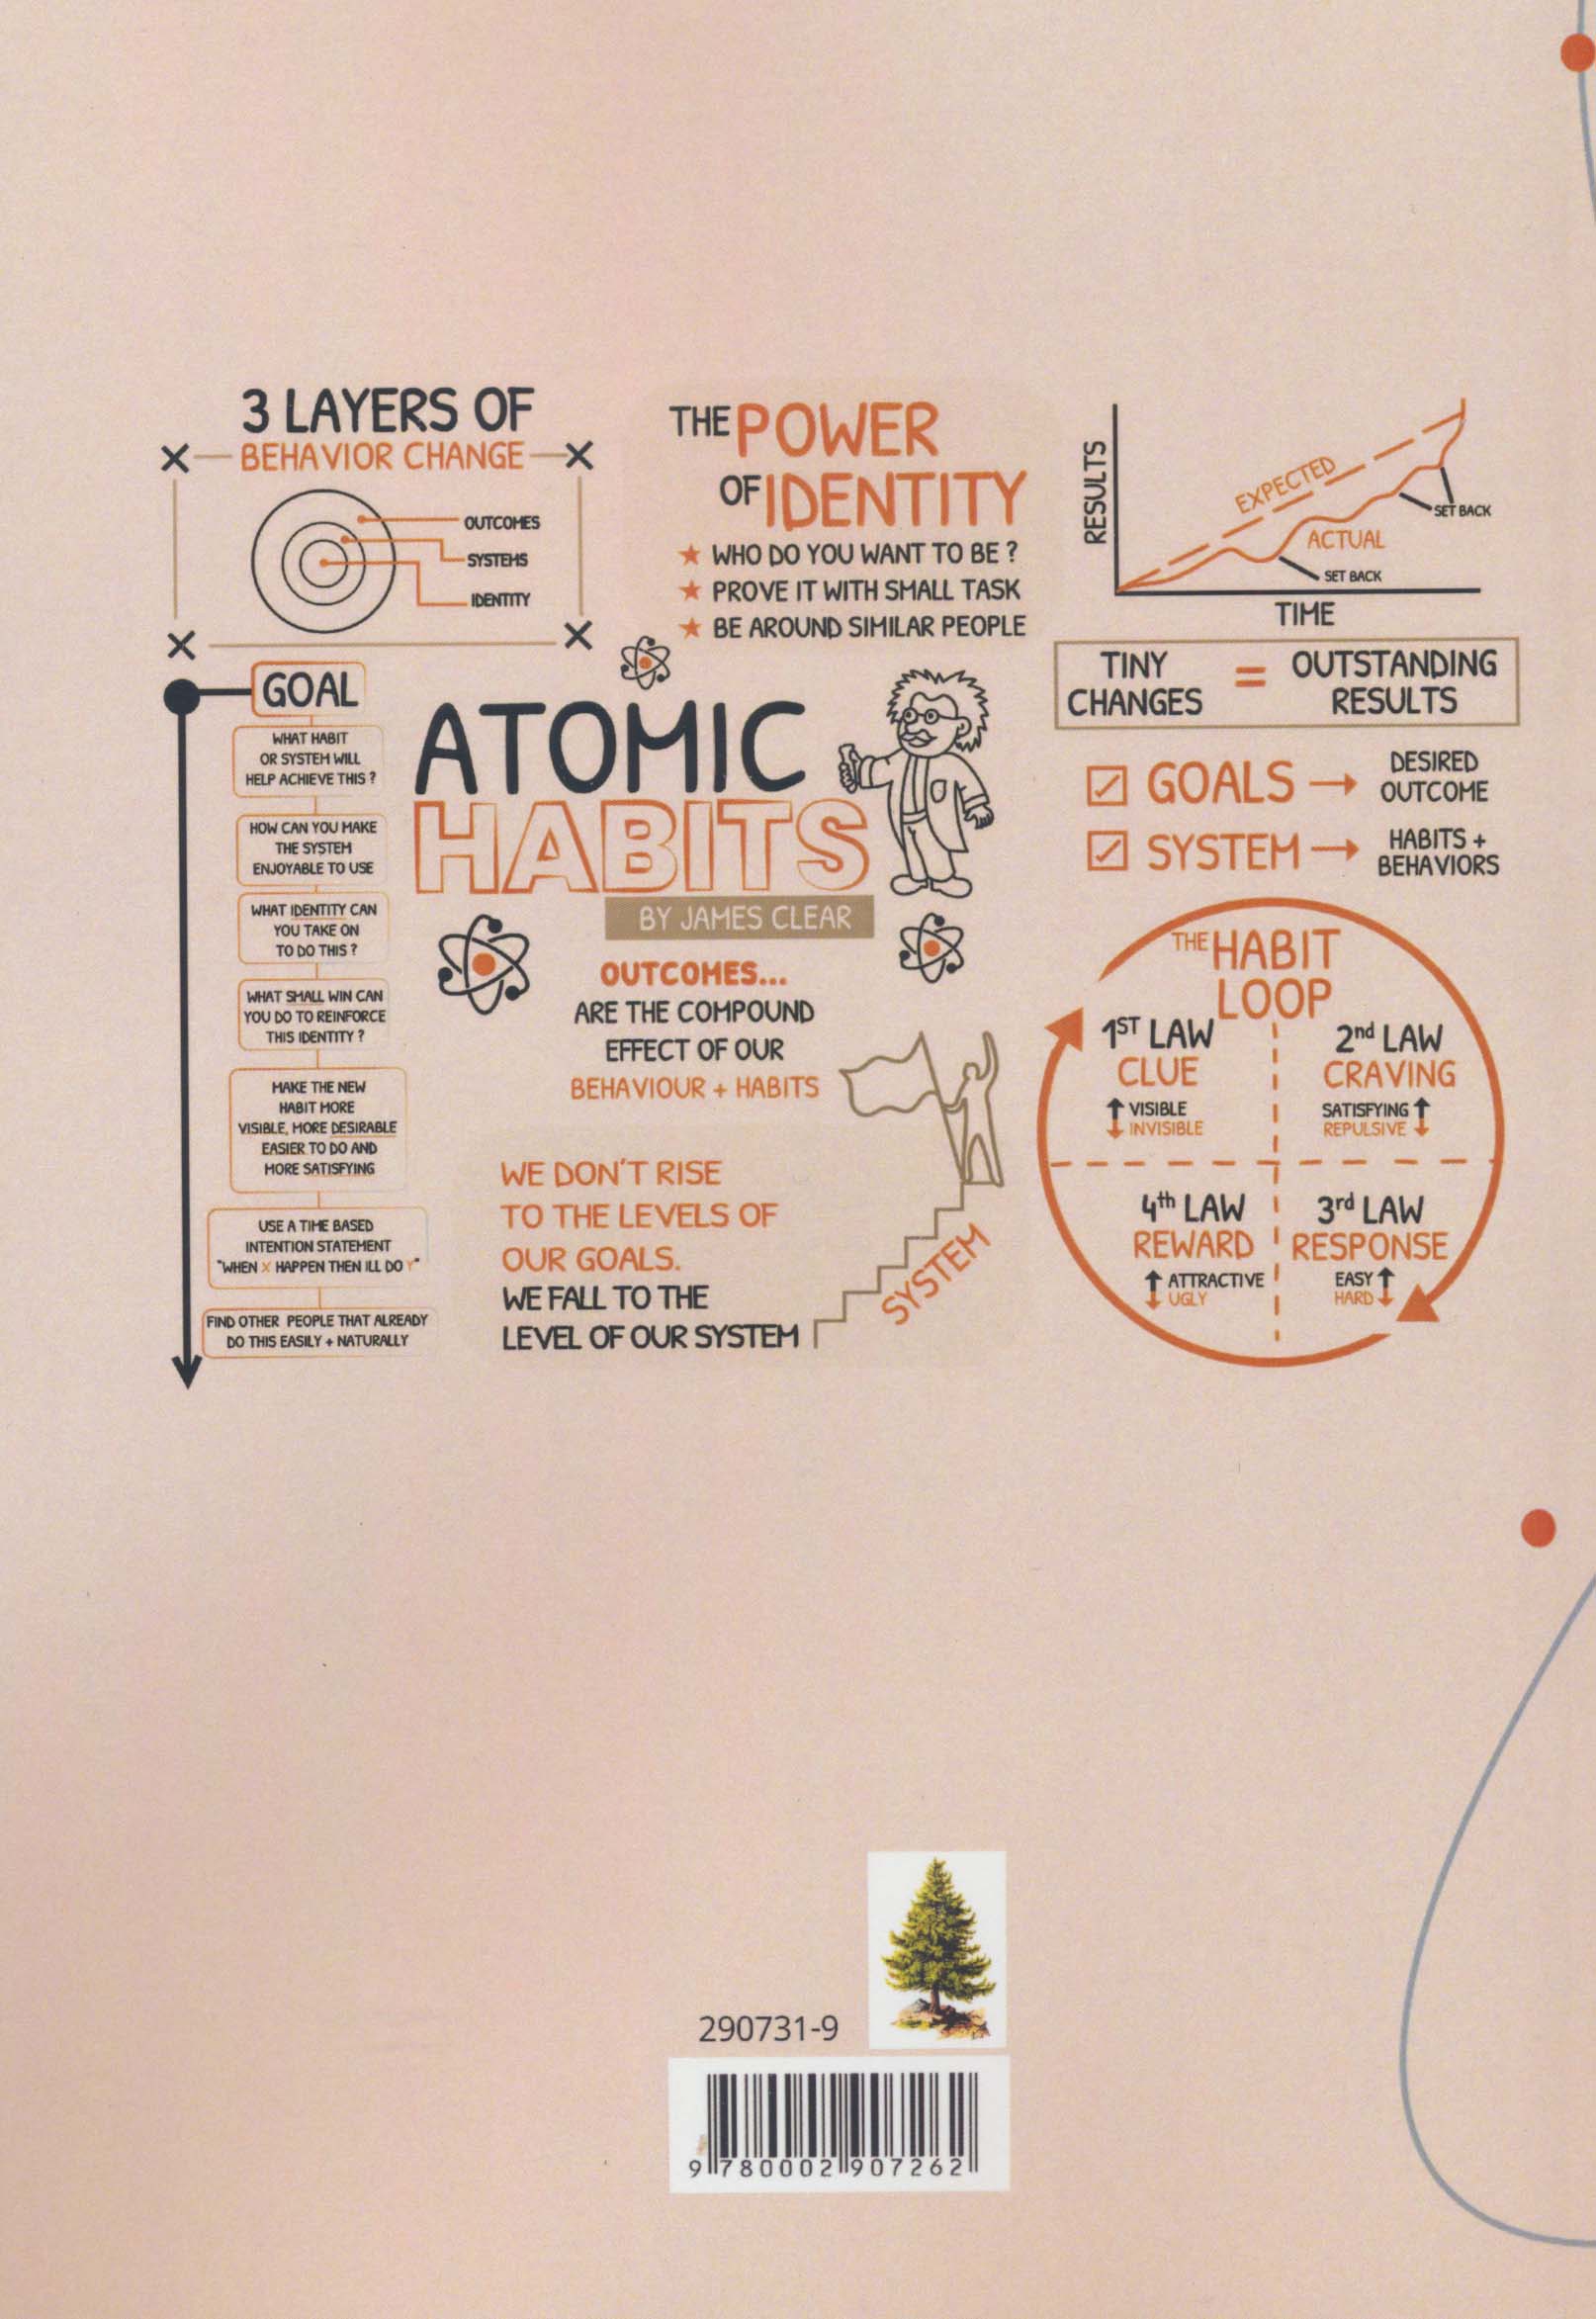 3 LAYERS OF
BEHAVIOR CHANGE
OUTCOMES
SYSTEMS
IDENTITY
THE POWER
OF IDENTITY
★ WHO DO YOU WANT TO BE ?
★ PROVE IT WITH SMALL TASK
★ BE AROUND SIMILAR PEOPLE
RESULTS
EXPECTED
ACTUAL
SET BACK
SET BACK
TIME
TINY
CHANGES
=
OUTSTANDING
RESULTS
GOALS →
DESIRED
OUTCOME
SYSTEM →
HABITS +
BEHAVIORS
GOAL
WHAT HABIT
OR SYSTEM WILL
HELP ACHIEVE THIS ?
HOW CAN YOU MAKE
THE SYSTEM
ENJOYABLE TO USE
WHAT IDENTITY CAN
YOU TAKE ON
TO DO THIS ?
WHAT SMALL WIN CAN
YOU DO TO REINFORCE
THIS IDENTITY ?
MAKE THE NEW
HABIT MORE
VISIBLE, MORE DESIRABLE
EASIER TO DO AND
MORE SATISFYING
USE A TIME BASED
INTENTION STATEMENT
"WHEN X HAPPEN THEN ILL DO Y"
FIND OTHER PEOPLE THAT ALREADY
DO THIS EASILY + NATURALLY
ATOMIC
HABITS
BY JAMES CLEAR
OUTCOMES...
ARE THE COMPOUND
EFFECT OF OUR
BEHAVIOUR + HABITS
WE DON'T RISE
TO THE LEVELS OF
OUR GOALS.
WE FALL TO THE
LEVEL OF OUR SYSTEM
SYSTEM
THE HABIT
LOOP
1ST LAW
CLUE
VISIBLE
INVISIBLE
2nd LAW
CRAVING
SATISFYING
REPULSIVE
4th LAW
REWARD
ATTRACTIVE
UGLY
3rd LAW
RESPONSE
EASY
HARD
290731-9
9 780002 907262